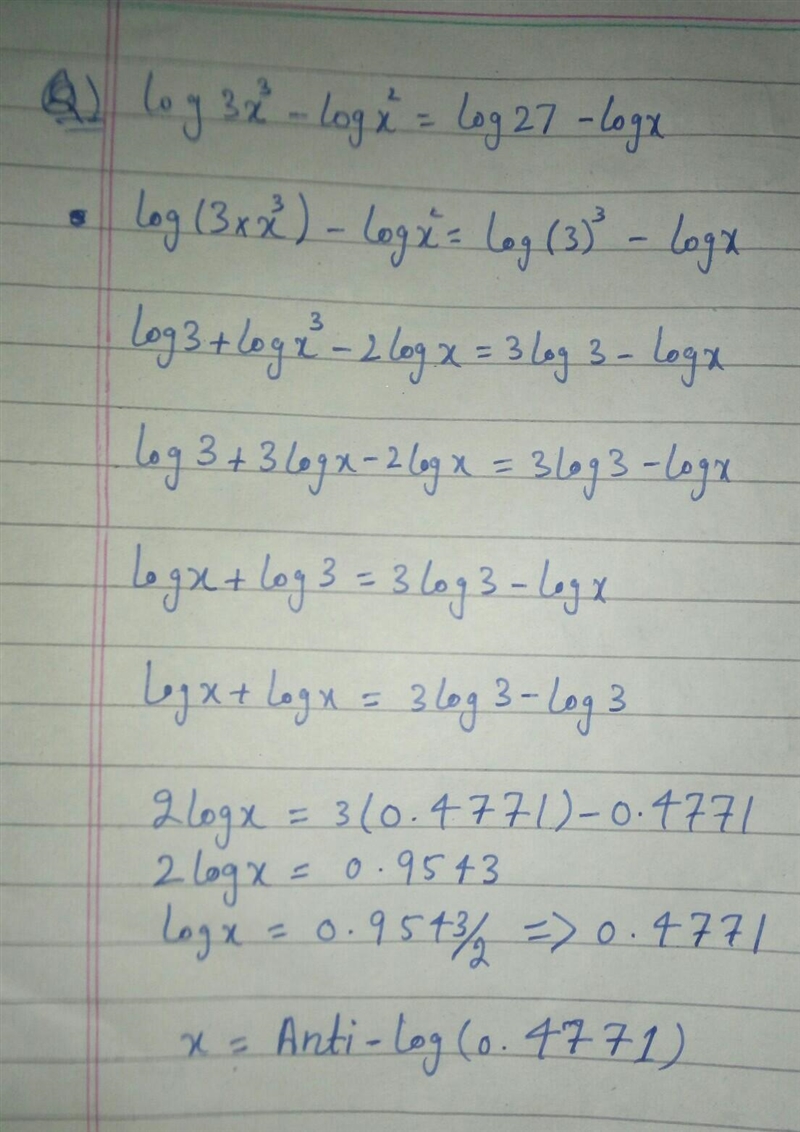 Q) log 3x³ - log x² = log 27 - log x
log (3×x³) - log x² = log (3)³ - log x
log 3 + log x³ - 2 log x = 3 log 3 - log x
log 3 + 3 log x - 2 log x = 3 log 3 - log x
log x + log 3 = 3 log 3 - log x
log x + log x = 3 log 3 - log 3
2 log x = 3 (0.4771) - 0.4771
2 log x = 0.9543
log x = 0.9543/2 => 0.4771
x = Anti-log (0.4771)